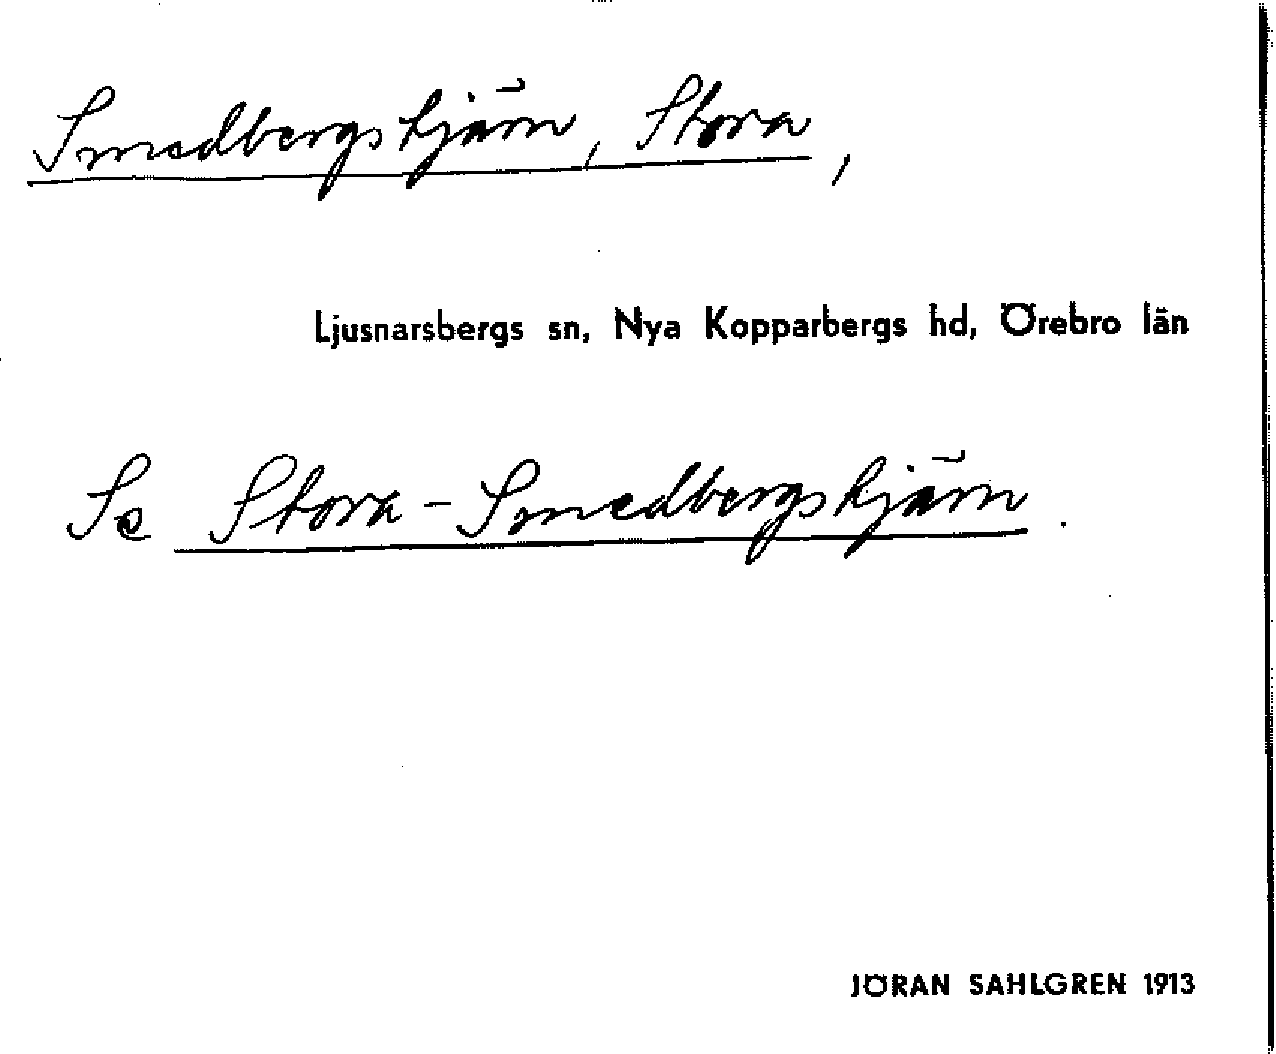 Smedbergstjärn, Stora,
Ljusnarsbergs sn, Nya Kopparbergs hd, Örebro län
Se Stora-Smedbergstjärn.
JÖRAN SAHLGREN 1913